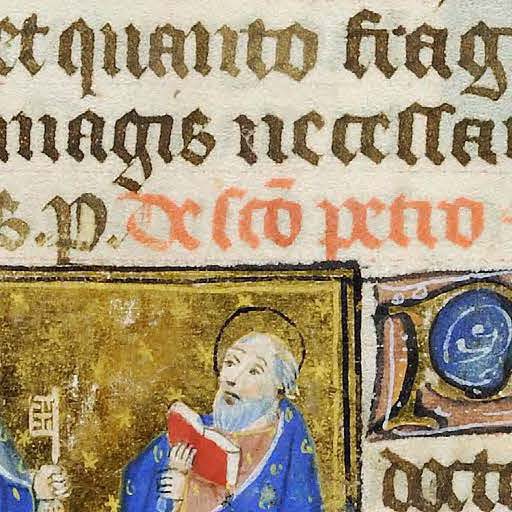 et quanto frag
magis necessar
S.P. De scō petro
docto